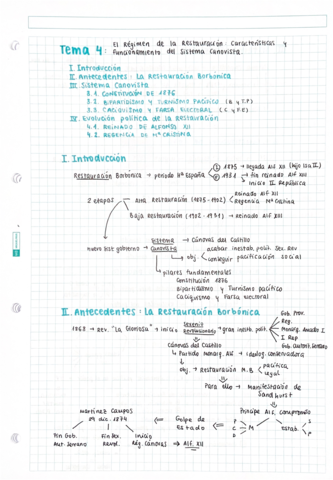 Tema 4: El Régimen de la Restauración: Características y
Funcionamiento del Sistema Canovista.
I. Introducción
II. Antecedentes: La Restauración Borbónica
III. Sistema Canovista
3.1. CONSTITUCIÓN DE 1876
3.2. BIPARTIDISMO Y TURNISMO PACÍFICO (B. y T.P.)
3.3. CACIQUISMO Y FARSA ELECTORAL (C. y F.E.)
IV. Evolución política de la Restauración
4.1. REINADO DE ALFONSO XII
4.2. REGENCIA DE Mª CRISTINA
I. Introducción
Restauración Borbónica → periodo Hª España
1875 → llegada Alf. XII (Hijo Isa II)
1931 → fin reinado Alf. XIII
Inicio II República
2 etapas
Alta Restauración (1875-1902)
Reinado Alf. XII
Regencia Mª Cristina
Baja Restauración (1902-1931) → reinado Alf. XIII
Sistema → Cánovas del Castillo
Canovista
acabar inestab. polít. Sex. Rev
obj
conseguir pacificación social
pilares fundamentales
Constitución 1876
Bipartidismo y Turnismo pacífico
Caciquismo y Farsa electoral
II. Antecedentes: La Restauración Borbónica
1868 → Rev. "La Gloriosa" → inicio
Sexenio
→ gran inestab. polít.
Gob. Prov.
Reg.
Monarq. Amadeo I
I Rep
Gob. autorit. Serrano
Cánovas del Castillo
↳ Partido Monarq. Alf. → ideolog. conservadora
obj. → Restauración M.B
pacífica
legal
Para ello → Manifestación de
Sandhurst
Príncipe Alf. compromiso
Martínez Campos
29 dic. 1874
Golpe de
Estado
P
C
D
M
Estab.
S
P
Fin Gob.
Aut. Serrano
Fin Sex.
Revol.
Inicio
Rég. Cánovas → Alf. XII